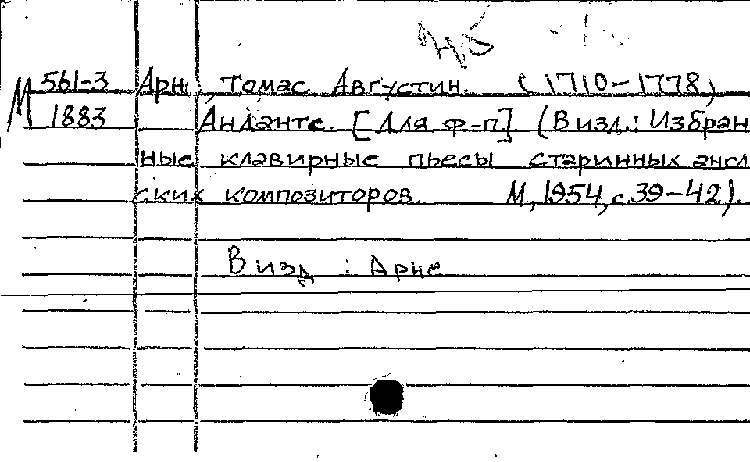 М 561-3 Арн, Томас Августин. (1710-1778)
1883 Анданте. [Для ф-п] (В изд.: Избран
ные клавирные пьесы старинных англ
ских композиторов М, 1954, с. 39-42).
В изд : Арне